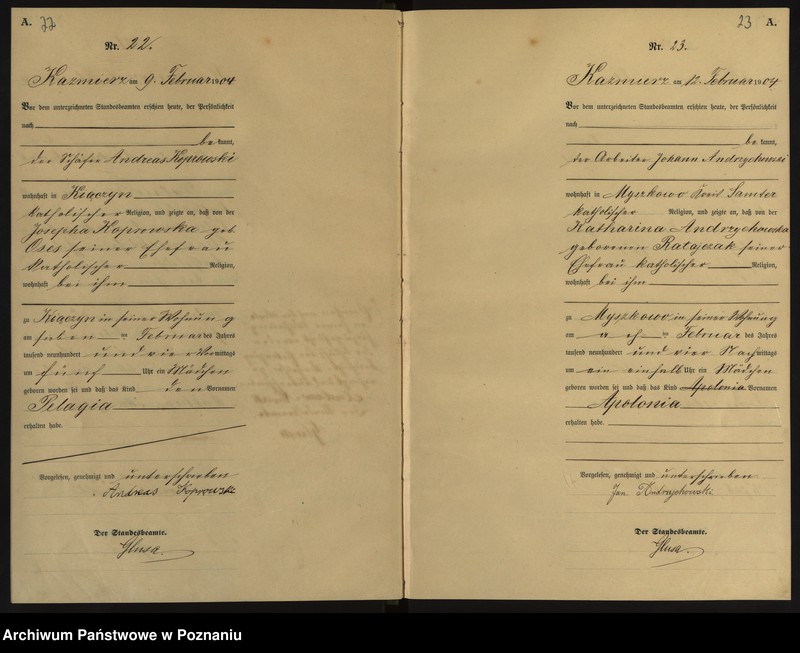 A. 22
Nr. 22.
Kazmierz am 9. Februar 1904
Vor dem unterzeichneten Standesbeamten erschien heute, der Persönlichkeit
nach
be kannt,
der Schäfer Andreas Koprowski
wohnhaft in Kiączyn
katholischer Religion, und zeigte an, daß von der
Josepha Koprowska geb.
Oses seiner Ehefrau
katholischer Religion,
wohnhaft bei ihm
zu Kiączyn in seiner Wohnung
am sieben ten Februar des Jahres
tausend neunhundert und vier Vormittags
um fünf Uhr ein Mädchen
geboren worden sei und daß das Kind den Vornamen
Pelagia
erhalten habe.
Vorgelesen, genehmigt und unterschrieben
Andreas Koprowski
Der Standesbeamte.
Glusa
23 A.
Nr. 23.
Kazmierz am 12. Februar 1904
Vor dem unterzeichneten Standesbeamten erschien heute, der Persönlichkeit
nach
be kannt,
der Arbeiter Johann Andrzychowski
wohnhaft in Myszkowo Kreis Samter
katholischer Religion, und zeigte an, daß von der
Katharina Andrzychowska
geborenen Ratajczak seiner
Ehefrau katholischer Religion,
wohnhaft bei ihm
zu Myszkowo in seiner Wohnung
am acht ten Februar des Jahres
tausend neunhundert und vier Nachmittags
um ein einhalb Uhr ein Mädchen
geboren worden sei und daß das Kind Apolonia Vornamen
Apolonia
erhalten habe.
Vorgelesen, genehmigt und unterschrieben
Jan Andrzychowski
Der Standesbeamte.
Glusa
Archiwum Państwowe w Poznaniu